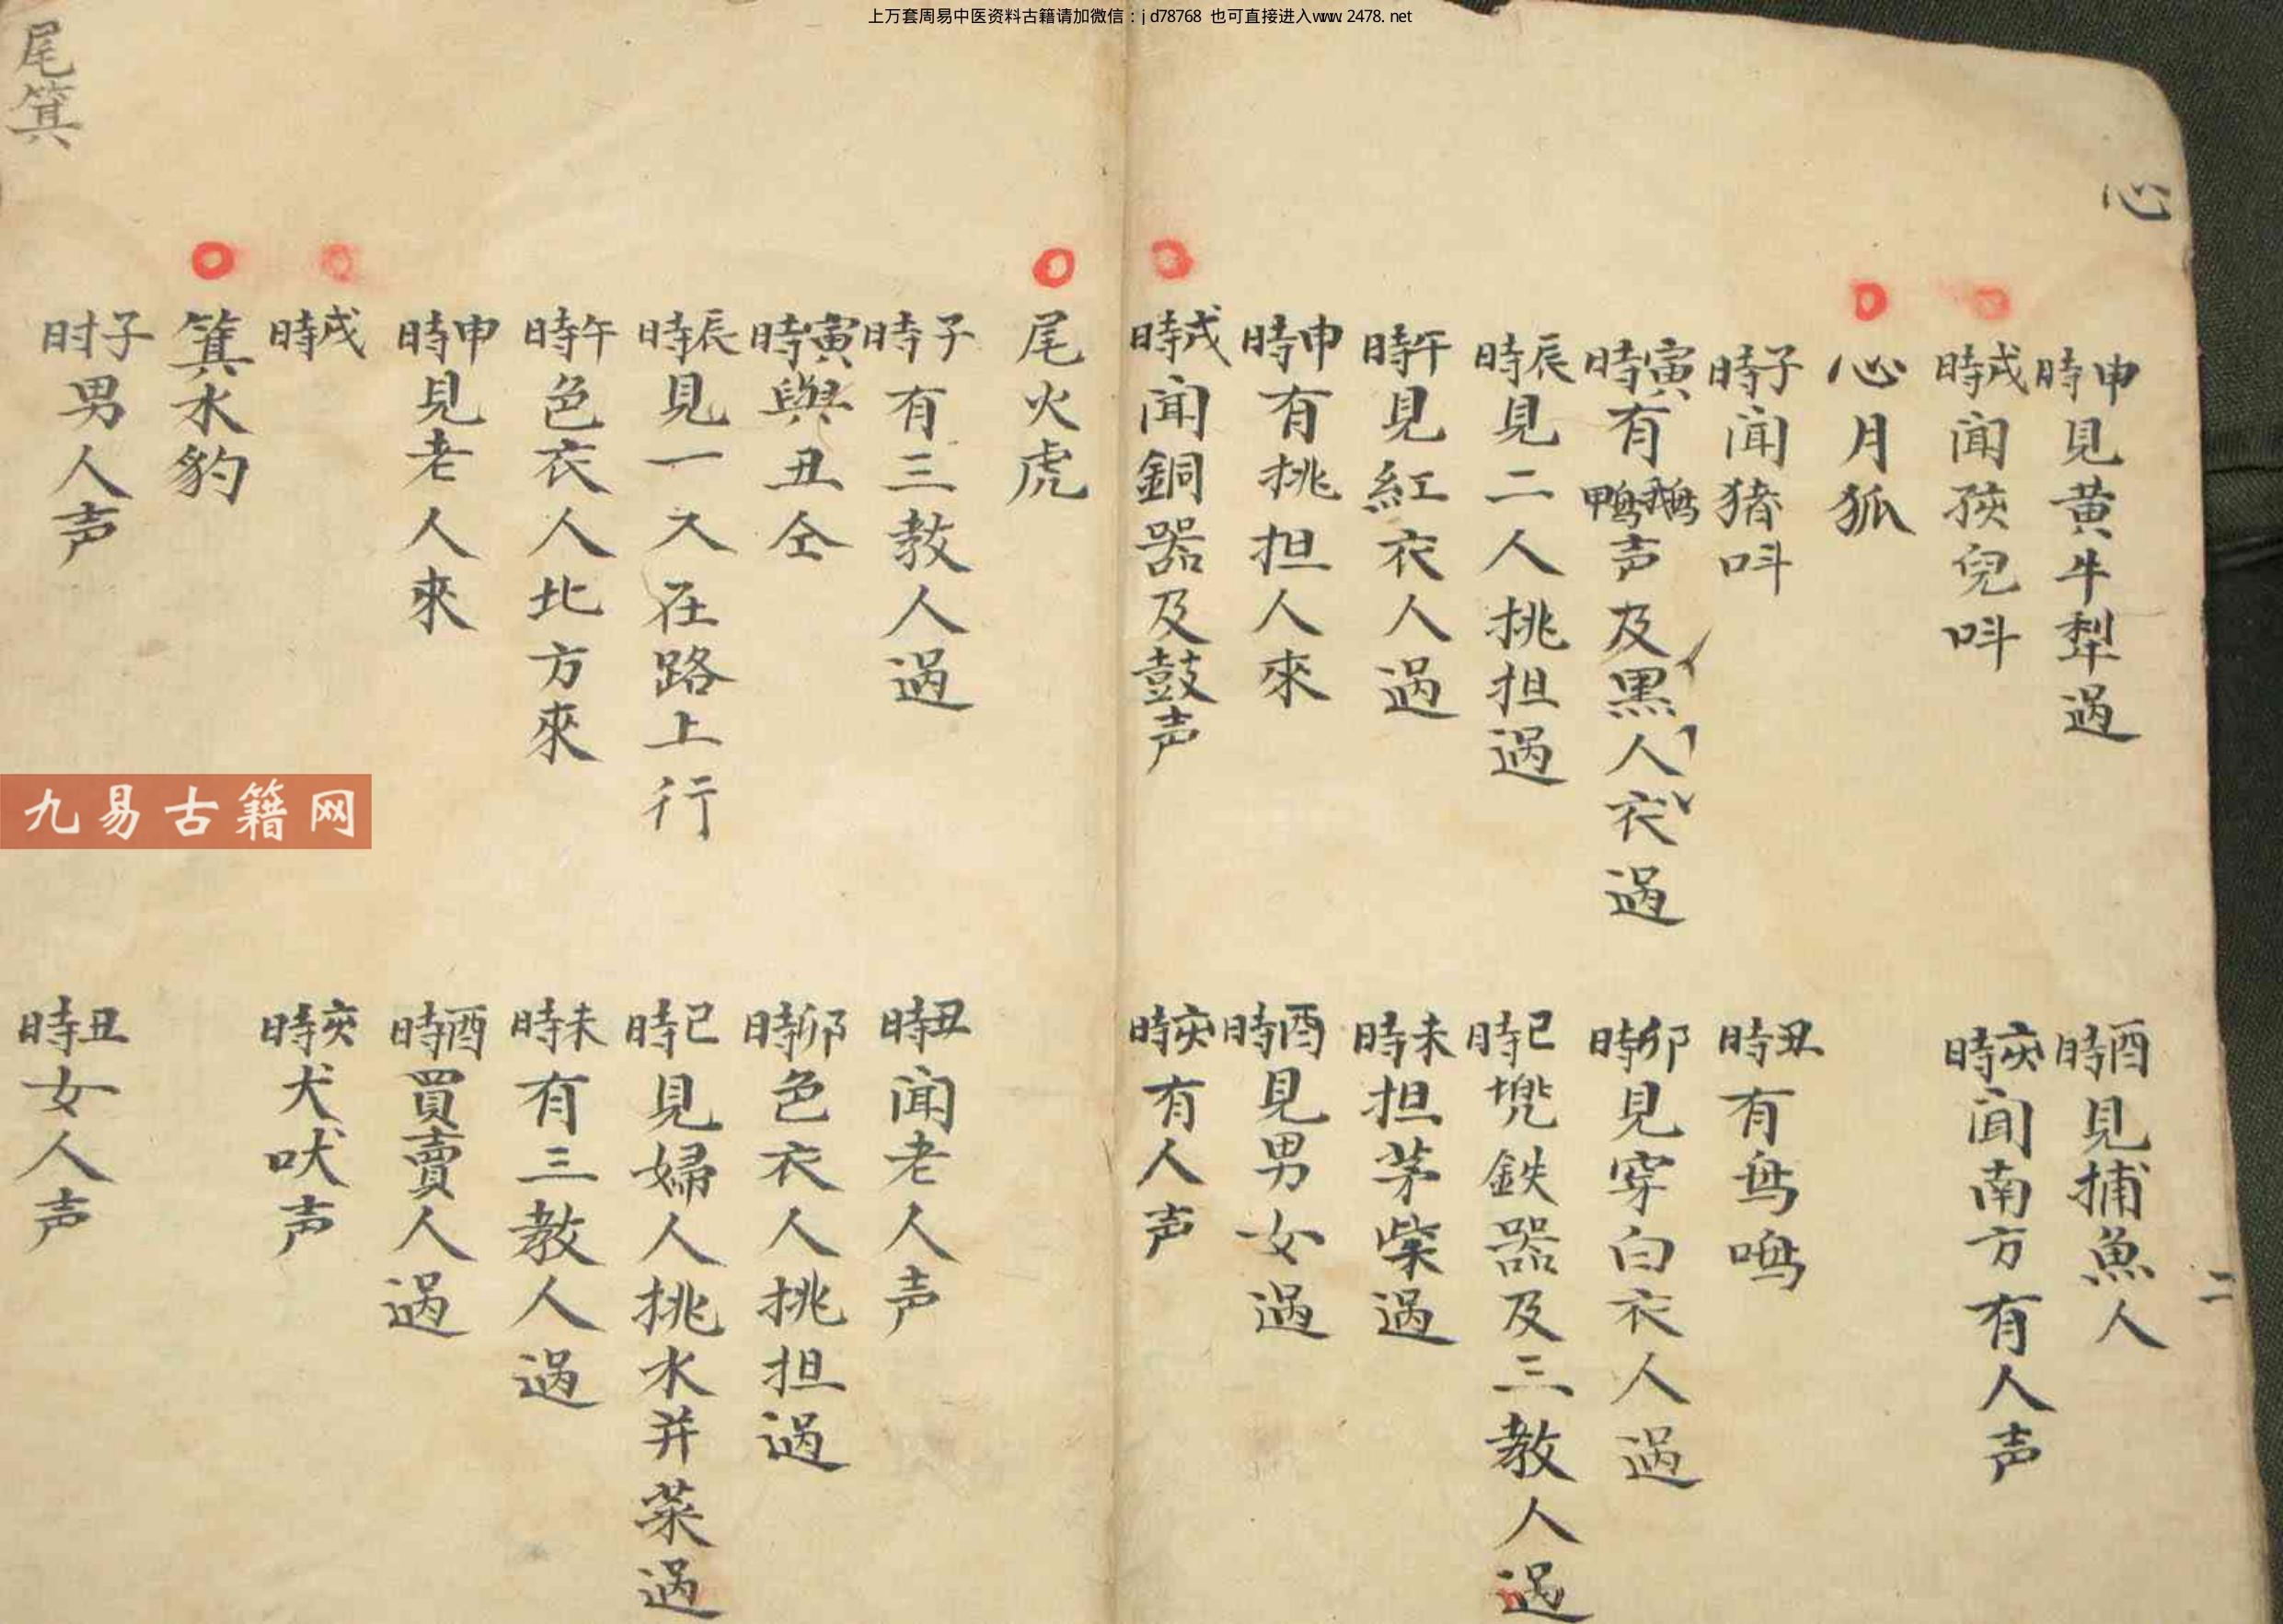 上万套周易中医资料古籍请加微信：jd78768 也可直接进入www.2478.net
心
申時見黄牛犁過
酉時見捕魚人
二
戌時闻孩兒呌
亥時闻南方有人声
心月狐
子時闻猪呌
丑時有鸟鳴
寅時有鵝鴨声及黑人衣過
卯時見穿白衣人過
辰時見二人挑担過
巳時兠鉄器及三教人過
午時見紅衣人過
未時担茅柴過
申時有挑担人來
酉時見男女過
戌時闻銅器及鼓声
亥時有人声
尾火虎
子時有三教人過
丑時闻老人声
寅時與丑仝
卯時色衣人挑担過
辰時見一人在路上行
巳時見婦人挑水并菜過
午時色衣人北方來
未時有三教人過
申時見老人來
酉時買賣人過
戌時
亥時犬吠声
箕水豹
子时男人声
丑時女人声
尾箕
九易古籍网